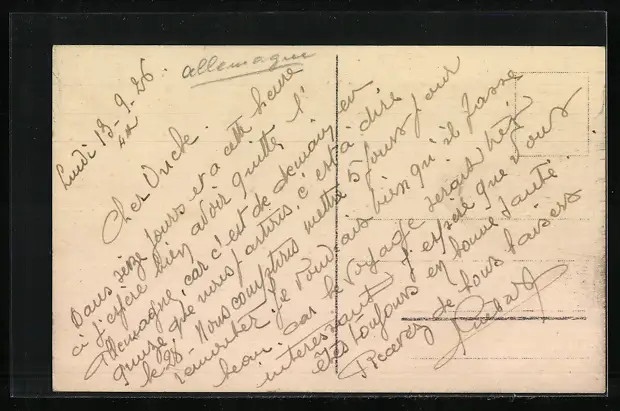 Allemagne
Lundi 13-9-26.
Cher Oncle.
Dans seize jours et a cette heure
ci j'espère bien avoir quitté l'
Allemagne, car c'est de demain en
que nous partirons, c'est à dire
le 28. Nous comptons mettre 5 jours pour
remonter. Je voudrais bien qu'il fasse
beau, car le voyage serait très
intéressant. J'espère que vous
êtes toujours en bonne santé.
Recevez de bons baisers